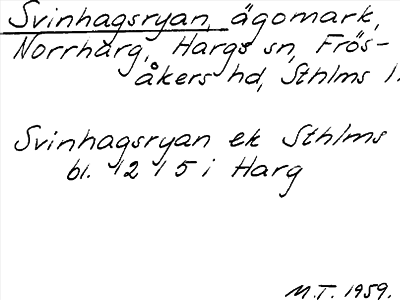 Svinhagsryan, ägomark,
Norrharg, Hargs sn, Frös-
åkers hd, Sthlms l.
Svinhagsryan ek Sthlms
bl. 12 15 i Harg
M.T. 1959.